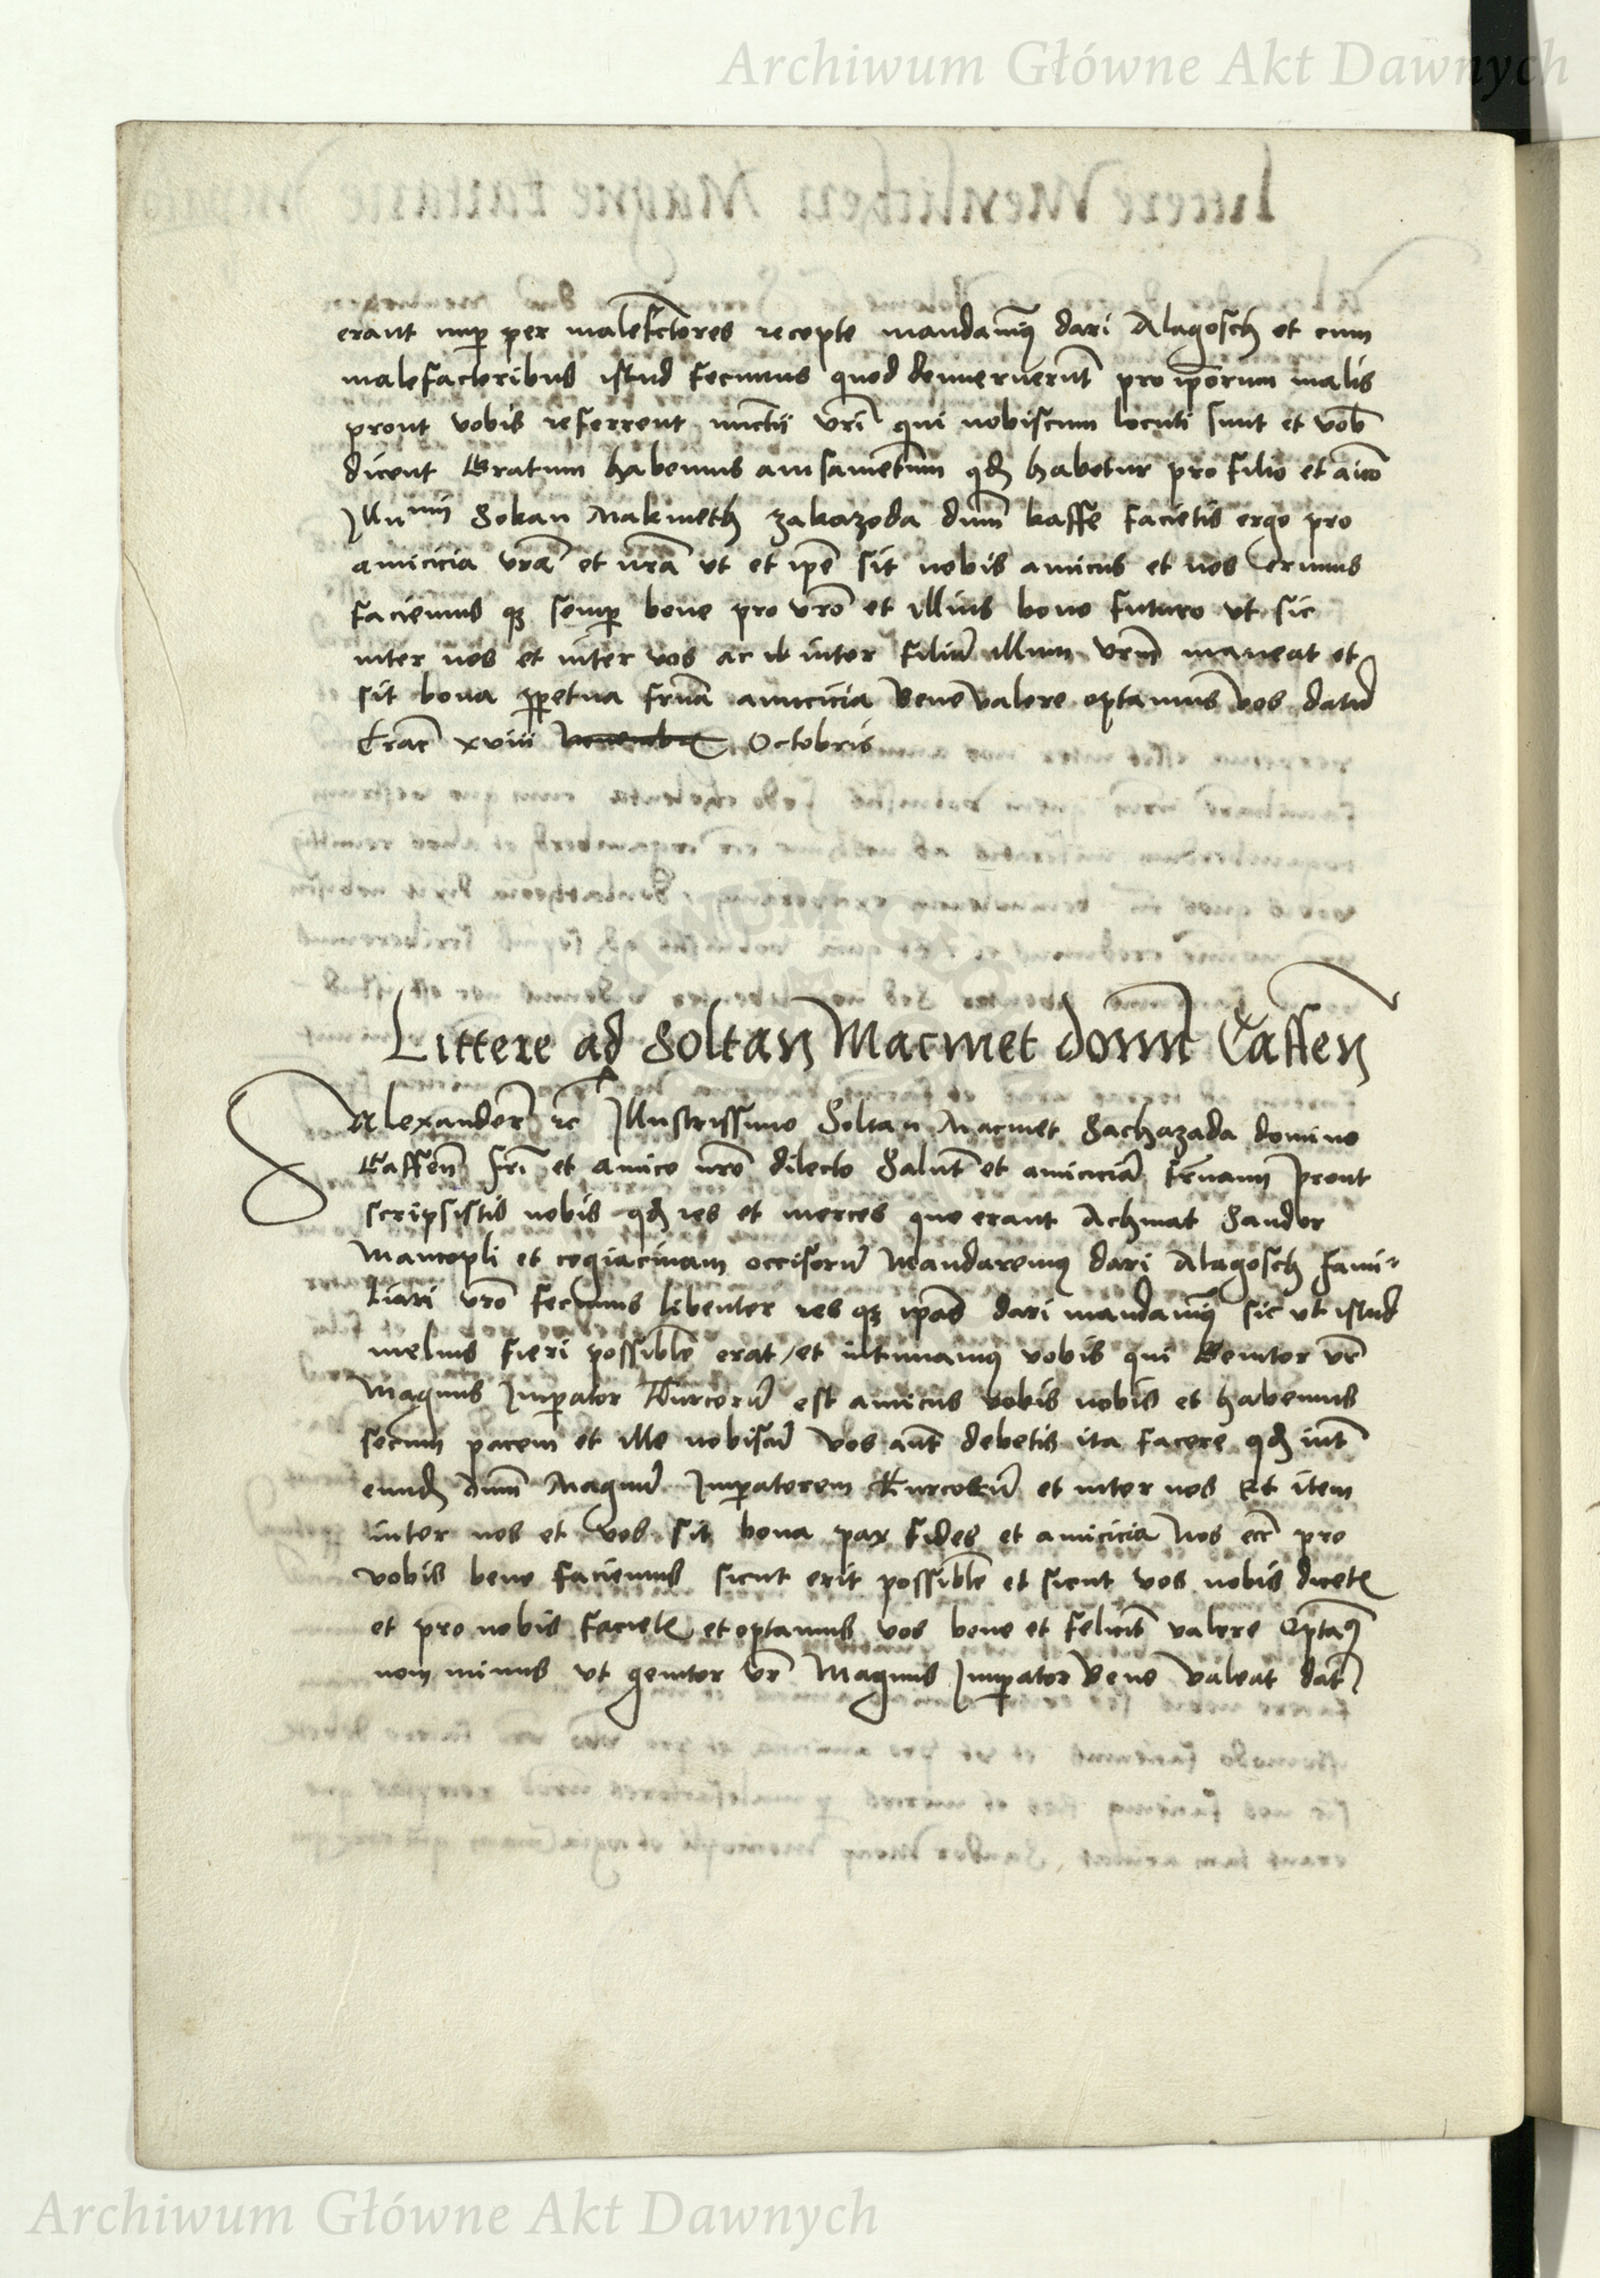 Archiwum Główne Akt Dawnych
erant nup per malefctores recepte mandamq dari Alagosch et cum
malefactoribus istud fecimus quod demeruerunt pro ipsorum malis
prout vobis referrent nunctii vri qui nobiscum locuti sunt et vob
dicent Gratum habemus avisamentum qd habetur pro filio et aico
Illumi Sokan Makmeth zakazoda dnm kaffe facietis ergo pro
amicicia vra et nra vt et ipe sit nobis amicus et nos erimus
faciemus q semp bene pro vro et illius bono futuro vt sic
inter nos et inter vos ac inter filiu illum vrm maneat et
sit bona ppetua frna amicicia Bene valere optamus vos datu
Crac xviii Novembr Octobris
Littere ad Soltan Macmet domi Caffen
Alexander rc Illustrissimo Soltan Macmet Sachazada domino
Caffen fri et amico nro dilecto Salut et amicicia frnam Prout
scripsistis nobis qd res et merces que erant Achmat Sander
Mancopli et cogiacinam occisoru Mandaremq dari Alagosch fami-
liari vro fecimus libenter res q ipas dari mandamq sic vt istud
melius fieri possible erat / et intimamq vobis qui Genitor vr
Magnus Impator Turcoru est amicus vobis nobis et habemus
secum pacem et ille nobiscu vos aut debetis ita facere qd int
eund dnm Magnu Impatorem Turcoru et inter nos Et item
inter nos et vos sit bona pax fides et amicicia Nos ecia pro
vobis bene faciemus sicut erit possible et sicut vos nobis dicet
et pro nobis faciet et optamus vos bene et felicit valere Optaq
non minus vt genitor vr Magnus Impator Bene valeat dat
Archiwum Główne Akt Dawnych